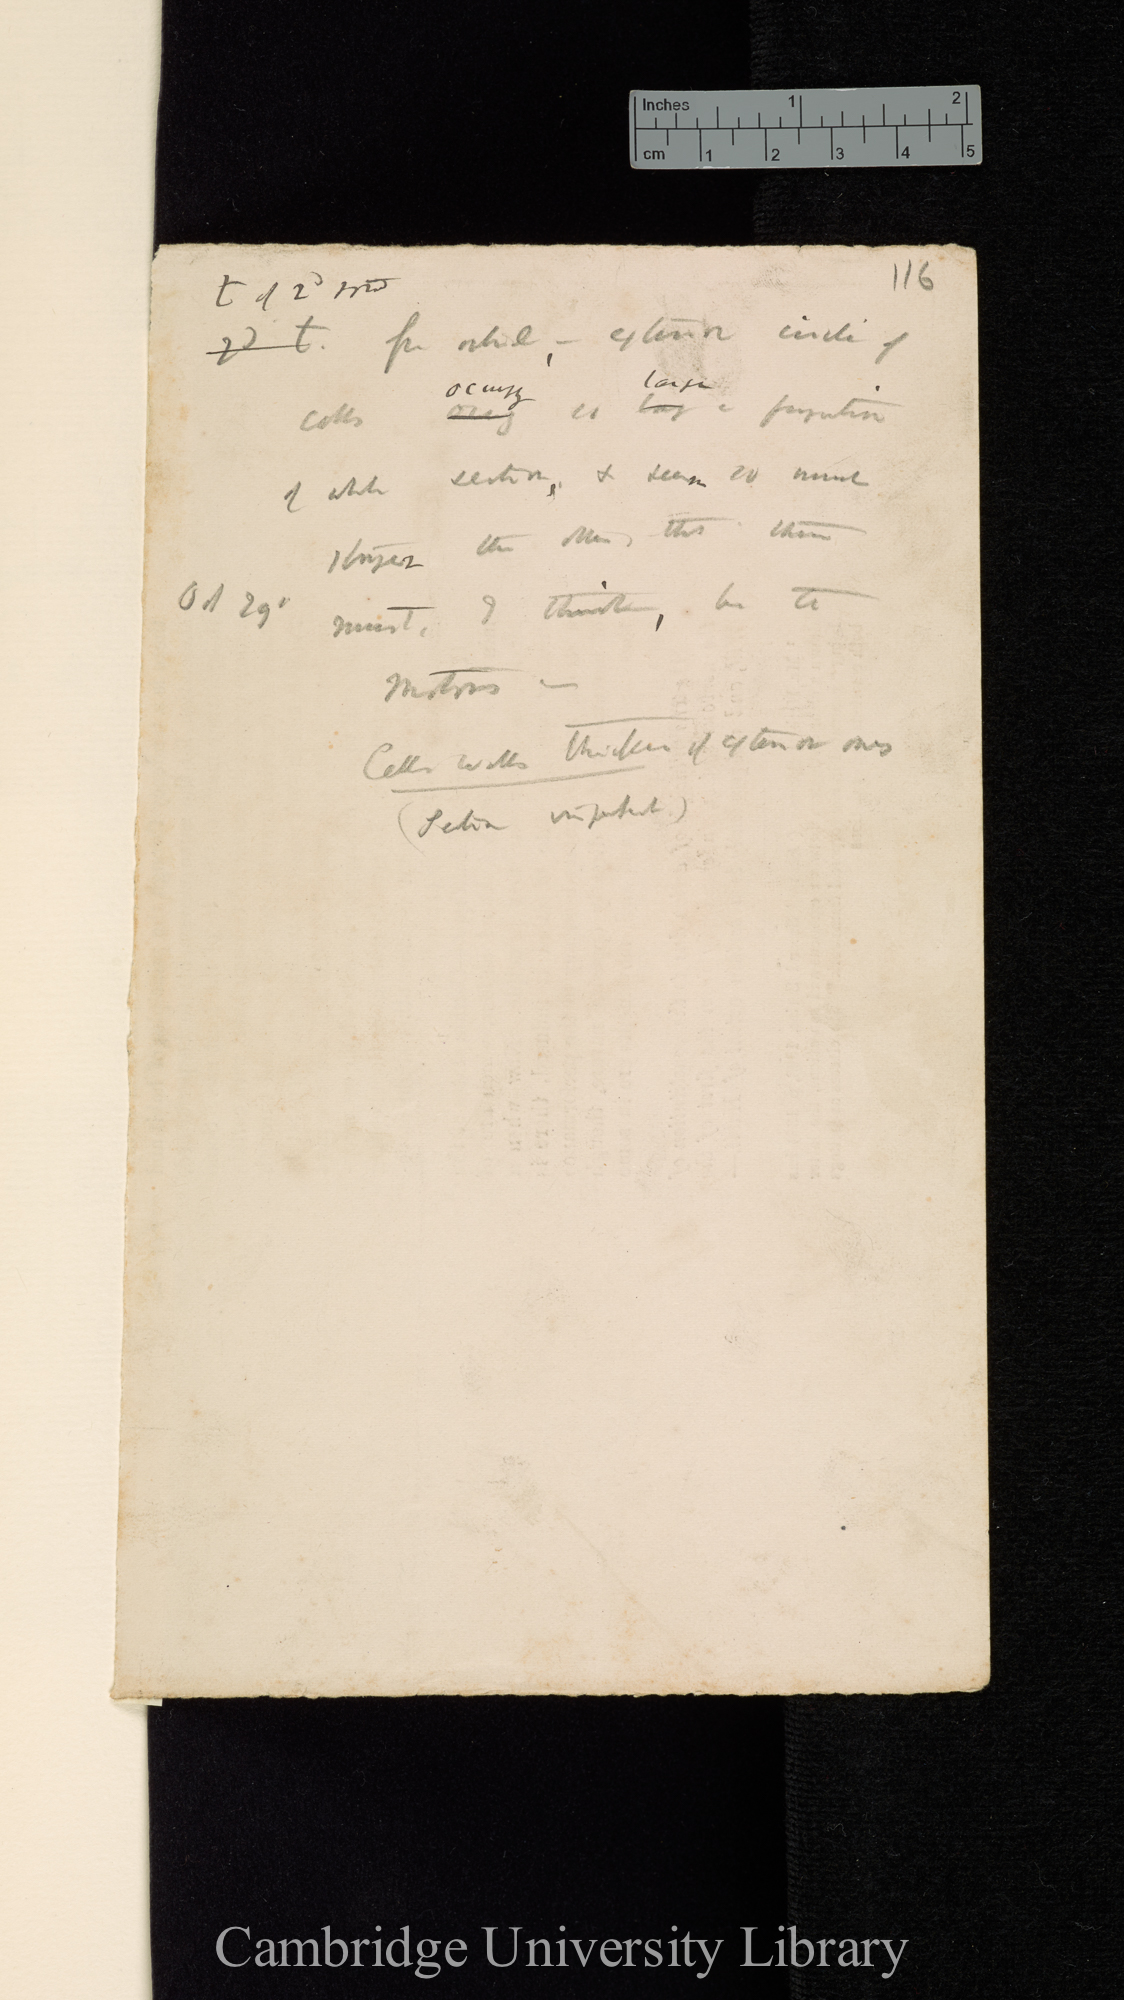 Inches 1 2
cm 1 2 3 4 5
116
t of 2d
2d t. for — exterior circle of
occupy large
cells so a proportion
of whole section, & seem so much
larger than others that these
Oct 29th must, I think, be the
motors —
Cells walls thicker of exterior ones
(Section imperfect)
Cambridge University Library